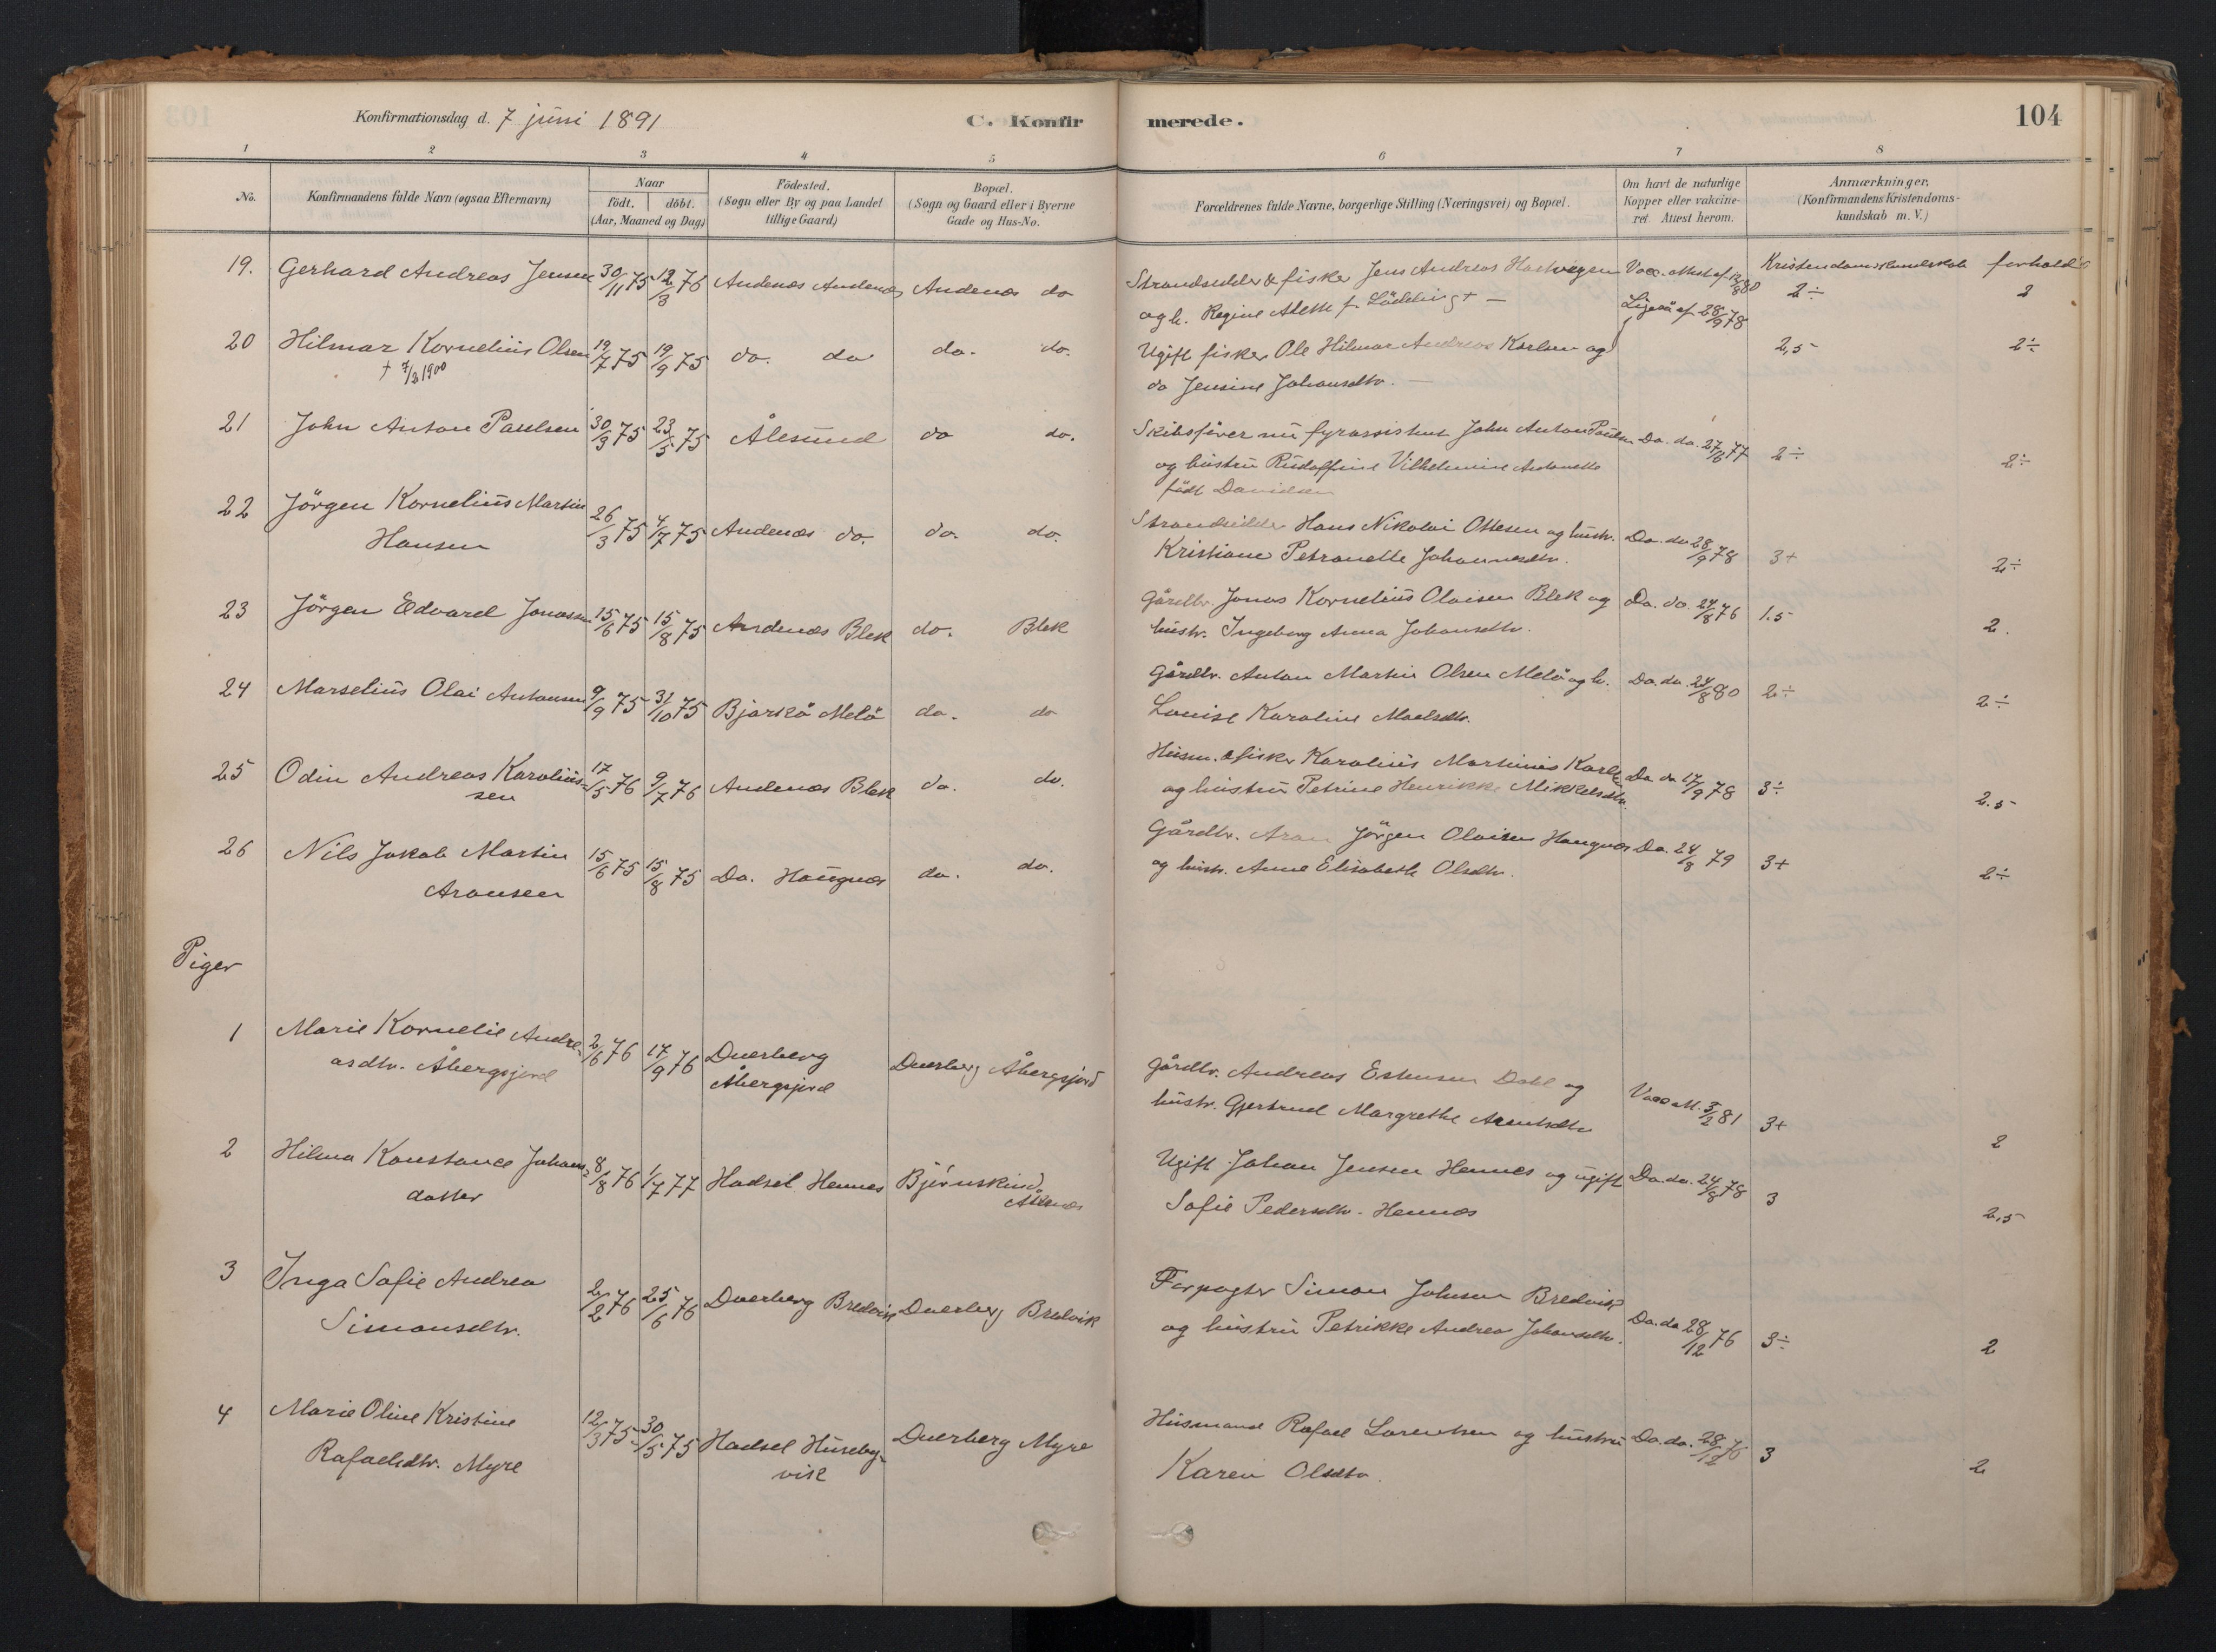 Konfirmationsdag d. 7 juni 1891
C. Konfirmerede.
104
1 2 3 4 5 6 7 8
No.
Konfirmandens fulde Navn (ogsaa Efternavn)
Naar
födt. döbt.
(Aar, Maaned og Dag)
Födested.
(Sogn eller By og paa Landet
tillige Gaard)
Bopæl.
(Sogn og Gaard eller i Byerne
Gade og Hus-No.
Forældrenes fulde Navne, borgerlige Stilling (Næringsvei) og Bopæl.
Om havt de naturlige
Kopper eller vakcine-
ret. Attest herom.
Anmærkninger.
(Konfirmandens Kristendoms-
kundskab m. V.)
Kristendomskundskab forhold
19. Gerhard Andreas Jensen 30/11 75 12/3 76 Andenæs Andenæs Andenæs do
Strandsidder & fisker Jens Andreas Hartvigsen Vacc. Attest af 12/8 80 2÷ 2
og h. Regine Alette f. Lödding +
Ligesaa af 28/9 78
20 Hilmar Kornelius Olsen 19/7 75 19/9 75 do. do do. do.
Ugift fisker Ole Hilmar Andreas Karlsen og 2,5 2÷
do Jensine Johansdtr.
21 John Anton Paulsen 30/3 75 23/5 75 Ålesund do do.
Skibsförer nu fyrassistent John Anton Paulsen Do. do. 27/6 77 2÷ 2÷
og hustru Rudolfine Vilhelmine Antonette
födt Davidsen
22 Jörgen Kornelius Martin
Hansen 26/3 75 4/7 75 Andenæs do. do. do.
Strandsidder Hans Nikolai Ottesen og hustr. Do. do 28/9 78 3+ 2÷
Kristiane Petronelle Johannesdtr.
23 Jörgen Edvard Jonassen 15/6 75 15/8 75 Andenæs Blek do. Blek
Gårdbr. Jonas Kornelius Olaisen Blek og Do. do. 24/8 76 1.5 2.
hustr. Ingeborg Anna Johansdtr.
24 Marselius Olai Antonsen 9/9 75 31/10 75 Bjarkö Melö do. do
Gårdbr. Anton Martin Olsen Melö og h. Do. do. 24/8 80 2÷ 2÷
Louise Karoline
25 Odin Andreas Karolius-
sen 17/5 76 9/7 76 Andenæs Blek do. do.
Husm. & fisker Karolius Martinus Karlsen Do do 17/9 78 3÷ 2.5
og hustru Petrine Henrikke Mikkelsdtr.
26 Nils Jakob Martin
Aronsen 15/6 75 15/8 75 Do. Haugnæs do. do.
Gårdbr. Aron Jörgen Olaisen Haugnæs Do. 24/8 79 3+ 2÷
og hustr. Anne Elisabeth Olsdtr.
Piger
1 Marie Kornelie Andre-
asdtr. Åbergsjord 2/6 76 17/9 76 Dverberg
Åbergsjord Dverberg Åbergsjord
Gårdbr. Andreas Dahl og
hustr. Gjertrud Margrethe Arentsdtr Vacc. At. 5/2 81 3+ 2
2 Hilma Konstance Johans-
datter 8/8 76 1/7 77 Hadsel Hennes Björnskind
Åknæs
Ugift Johan Jensen Hennes og ugift Do. do. 24/8 78 3 2,5
Sofie Pedersdtr. Hennæs
3 Inga Sofie Andrea
Simonsdtr. 2/2 76 25/6 76 Dverberg Bredvik Dverberg Bredvik
Forpagter Simon Johnsen Bredvik
og hustru Petrikke Andrea Johansdtr. Do. do 28/12 76 3÷ 2
4 Marie Oline Kristine
Rafaelsdtr. Myre 12/3 75 30/5 75 Hadsel Huseby-
vik Dverberg Myre
Husmand Rafael Lorentsen og hustru Do. do. 28/12 76 3 2
Karen Olsdtr.
† 7/2 1900